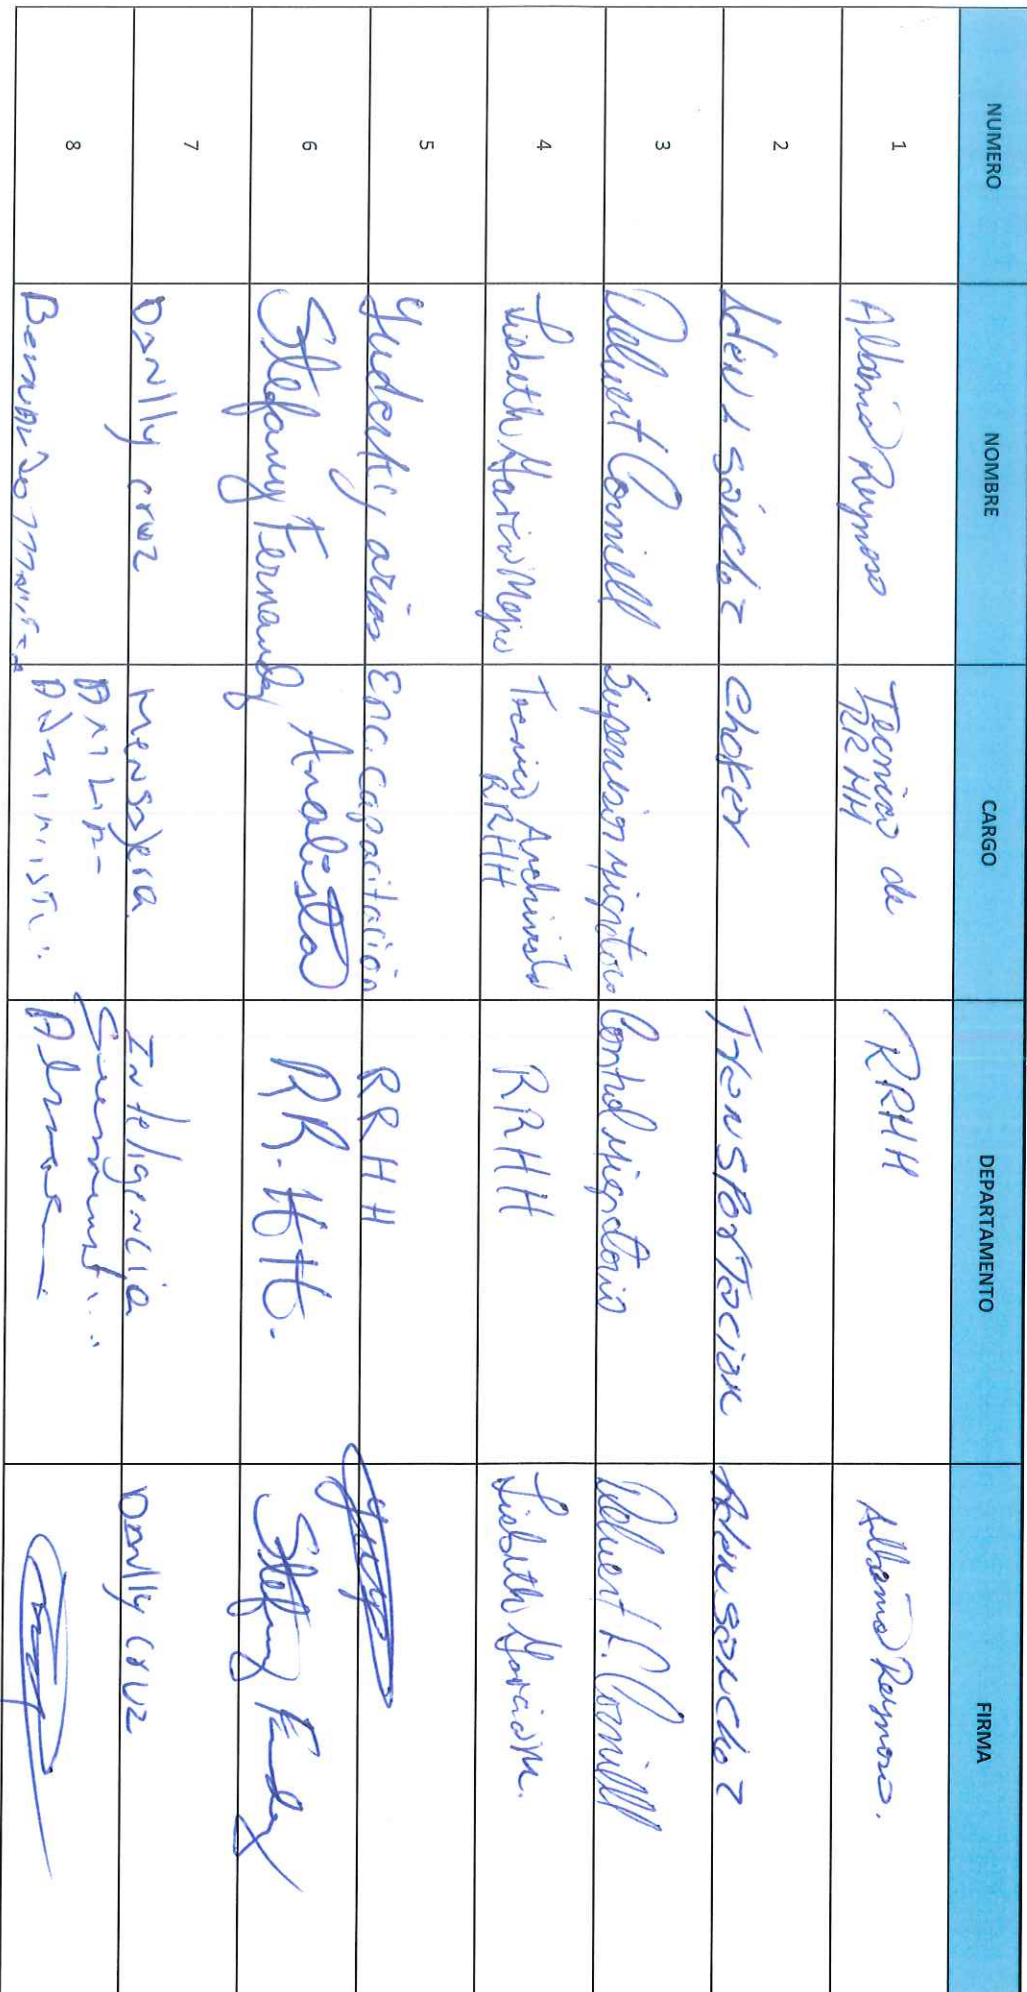 NUMERO NOMBRE CARGO DEPARTAMENTO FIRMA
1 Albania Reynoso Tecnico de RRHH RRHH Albania Reynoso.
2 Sánchez Chofer Transportacion Sanchez
3 Welvert Corniell Supervisor Migratorio Control Migratorio Welvert Corniell
4 Lisbeth Garcia Mejia Tecnico Archivista RRHH RRHH Lisbeth Garcia M.
5 Yuderky arias Enc. Capacitación RRHH
6 Stefany Fernandez Analista RR.HH. Stefany
7 Danlly cruz Mensajera Inteligencia Danlly cruz
8